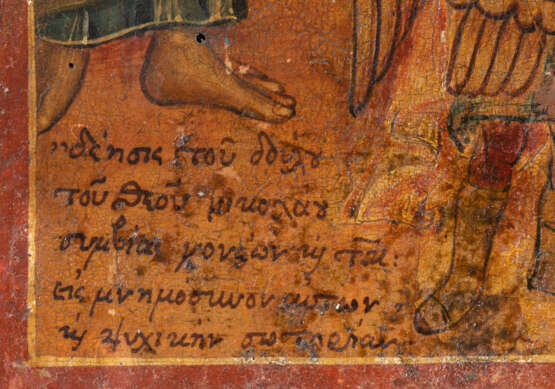 δέησις τοῦ δούλου
τοῦ Θεοῦ νικολάου
συμβίας γονέων κ τέκ
εἰς μνημόσυνον αυτων
κ ψυχικήν σωτορίαν